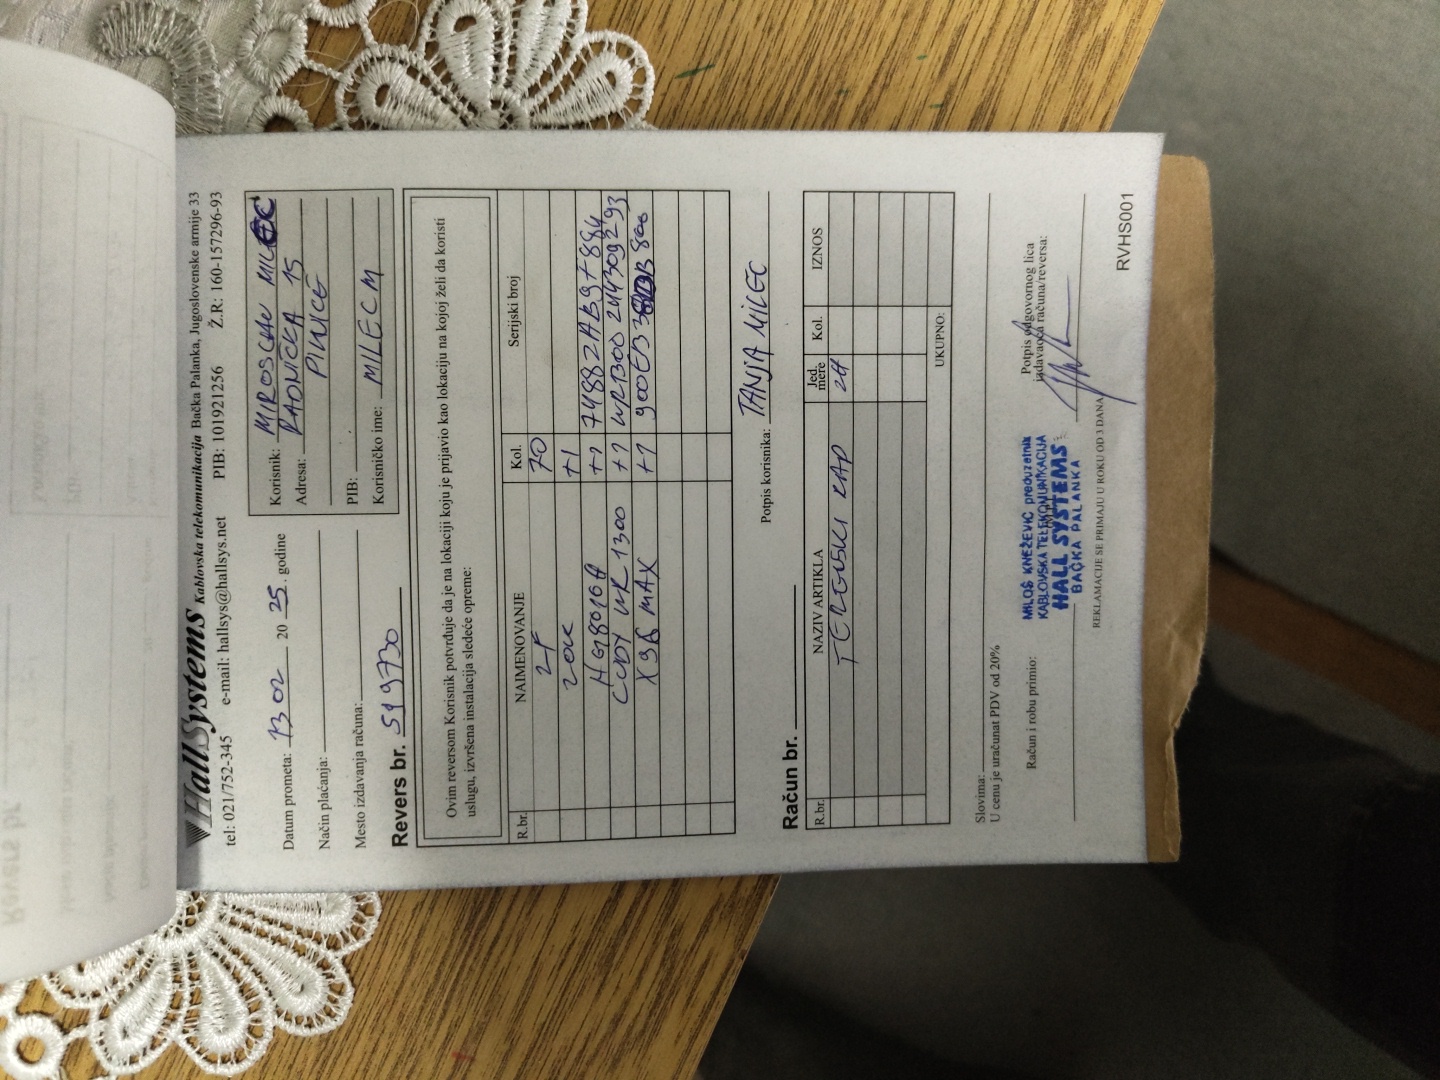 HallSystems Kablovska telekomunikacija Bačka Palanka, Jugoslovenske armije 33
tel: 021/752-345 e-mail: hallsys@hallsys.net PIB: 101921256 Ž.R: 160-157296-93
Datum prometa: 13 02 20 25. godine
Način plaćanja:
Mesto izdavanja računa:
Korisnik: MIROSLAV MILEC
Adresa: RADNIČKA 15
PIVNICE
PIB:
Korisničko ime: MILECM
Revers br. 519730
Ovim reversom Korisnik potvrđuje da je na lokaciji koju je prijavio kao lokaciju na kojoj želi da koristi
uslugu, izvršena instalacija sledeće opreme:
R.br. NAIMENOVANJE Kol. Serijski broj
2F 70
ZOK +1
HG8010H +1
CUDY WR 1300 +1
+1
Potpis korisnika: TANJA MILEC
Račun br.
R.br. NAZIV ARTIKLA Jed. mere Kol. IZNOS
TERGUSKI RAD 2H
UKUPNO:
Slovima:
U cenu je uračunat PDV od 20%
Račun i robu primio:
MILOŠ KNEŽEVIĆ preduzetnik
KABLOVSKA TELEKOMUNIKACIJA
HALL SYSTEMS
BAČKA PALANKA
Potpis odgovornog lica
izdavaoca računa/reversa:
REKLAMACIJE SE PRIMAJU U ROKU OD 3 DANA
RVHS001